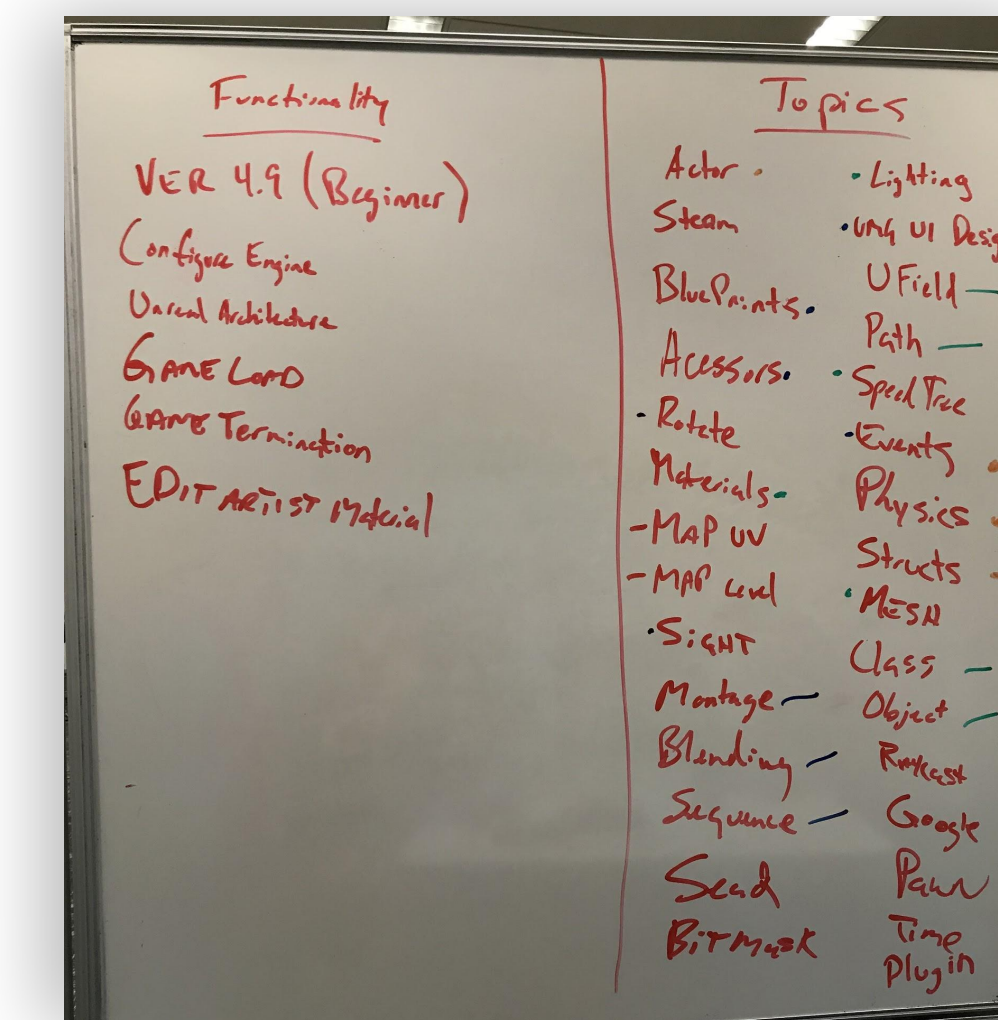 Functionality
VER 4.9 (Beginner)
Configure Engine
Unreal Architecture
GAME LOAD
GAME Termination
EDIT ARTIST Material
Topics
Actor
Steam
BluePrints
Acessors
Rotate
Materials
- MAP UV
- MAP Level
SIGHT
Montage
Blending
Sequence
BITMask
Lighting
UMG UI Desig
UField
Path
Speed Tree
Events
Physics
Structs
MESH
Class
Object
Raycast
Google
Pawn
Time
Plugin